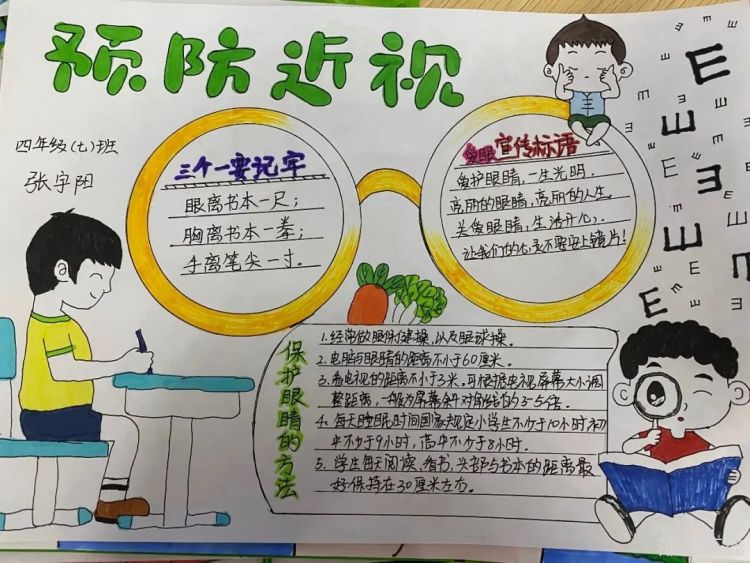 预防近视
四年级(七)班
张宇阳
三个一要记牢
眼离书本一尺;
胸离书本一拳;
手离笔尖一寸.
爱眼宣传标语
爱护眼睛,一生光明.
亮丽的眼睛,亮丽的人生.
关爱眼睛,生活开心.
让我们的心灵不要安上镜片!
保护眼睛的方法
1.经常做眼保健操,以及眼球操.
2.电脑与眼睛的距离不小于60厘米.
3.看电视的距离不小于3米,可根据电视屏幕大小调
整距离,一般为屏幕对角线的3-5倍.
4.每天睡眠时间国家规定小学生不少于10小时初
中不少于9小时,高中不少于8小时.
5.学生每天阅读、看书,头部与书本的距离最
好保持在30厘米左右.